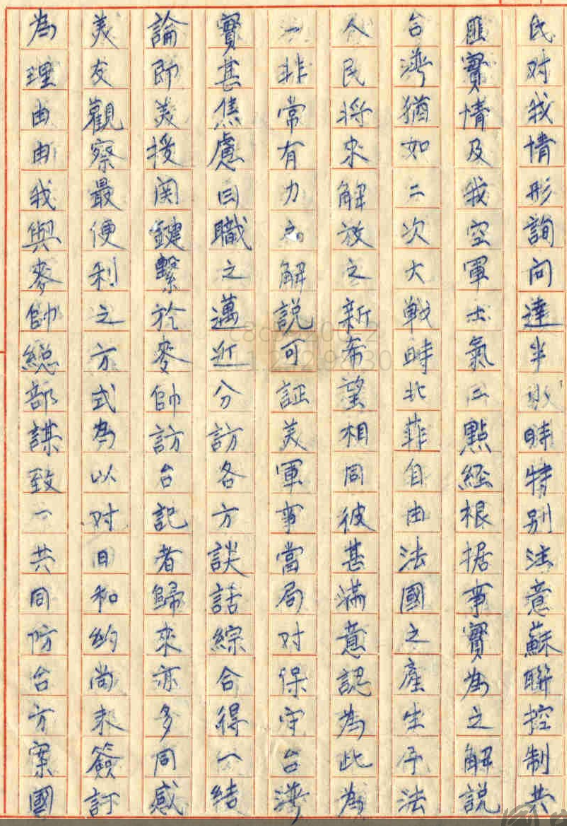 氏对我情形詢问達半小時特别注意蘇聯控制共
匪實情及我空軍士氣二點經根据事實為之解説
台灣猶如二次大戰時北菲自由法國之產生予法
人民將來解放之新希望相同彼甚滿意認為此為
一非常有力之解説可証美軍事當局对保守台灣
實甚焦慮回職之邁近分訪各方談話綜合得一結
論即美援関鍵繫於麥帥訪台記者歸來亦多同感
美友觀察最便利之方式為以对日和約尚未簽訂
為理由由我與麥帥總部謀致一共同防台方案國